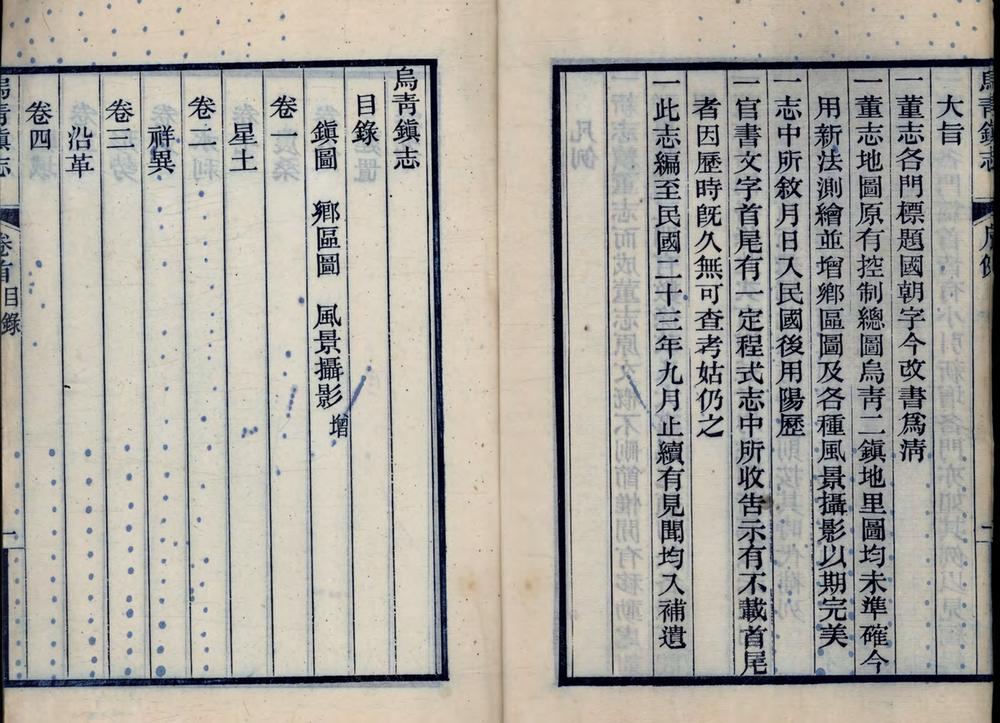 大旨
一董志各門標題國朝字今改書爲淸
一董志地圖原有控制總圖烏靑二鎭地里圖均未準確今
用新法測繪並增鄕區圖及各種風景攝影以期完美
一志中所敘月日入民國後用陽歷
一官書文字首尾有一定程式志中所收告示有不載首尾
者因歷時旣久無可查考姑仍之
一此志編至民國二十三年九月止續有見聞均入補遺
烏靑鎭志
目錄
鎭圖 鄕區圖 風景攝影增
卷一
星土
卷二
祥異
卷三
沿革
卷四
烏靑鎭志 卷首目錄 一